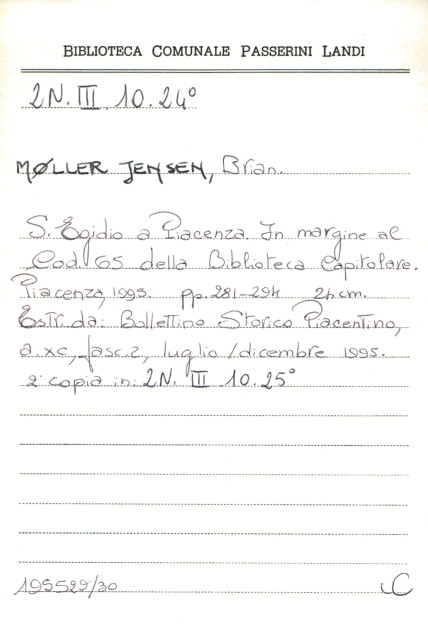 BIBLIOTECA COMUNALE PASSERINI LANDI
2N. III 10. 24°
MØLLER JENSEN, Brian.
S. Egidio a Piacenza. In margine al
Cod. 65 della Biblioteca Capitolare.
Piacenza, 1995. pp. 281-294 24 cm.
Estr. da: Bollettino Storico Piacentino,
a. XC, fasc. 2, luglio/dicembre 1995.
2ª copia in: 2N. III 10. 25°
195529/30